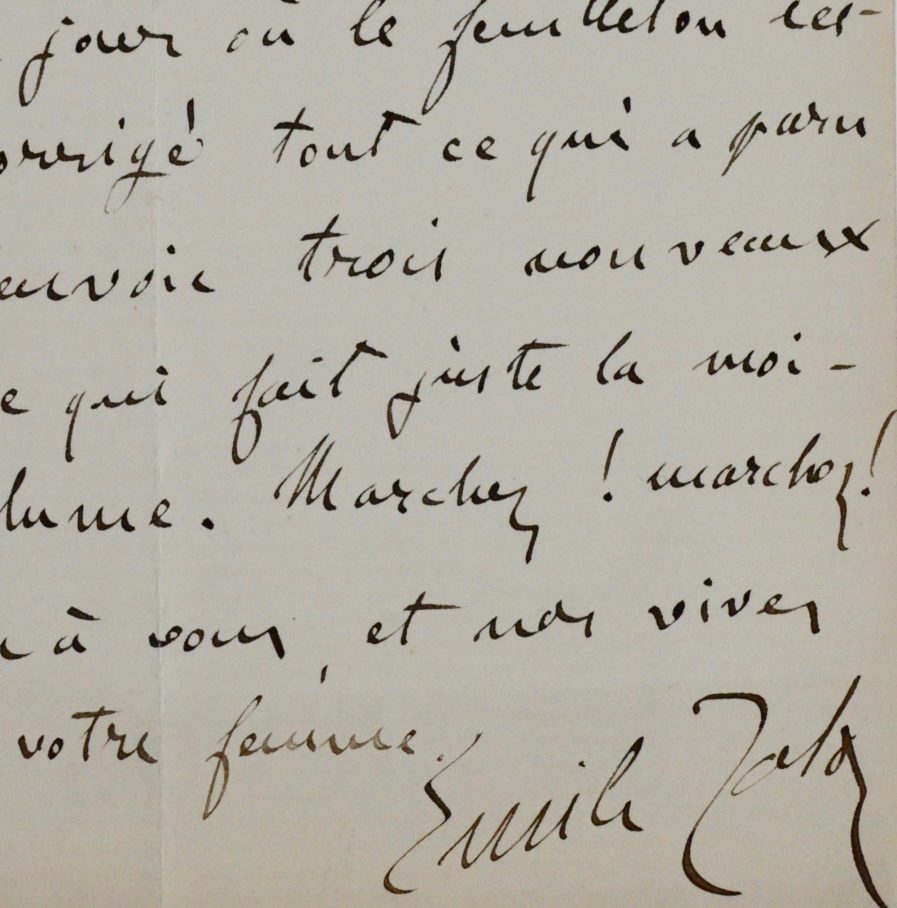 jour où le feuilleton ces-
orrigé tout ce qui a paru
envoie trois nouveaux
e qui fait juste la moi-
lume. Marchez ! marchez !
à vous, et nos vives
votre femme.
Emile Zola